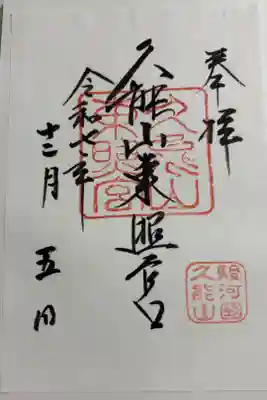 奉拝
久能山東照宮
令和七年
十二月 五日
久能山
東照宮
駿河國
久能山